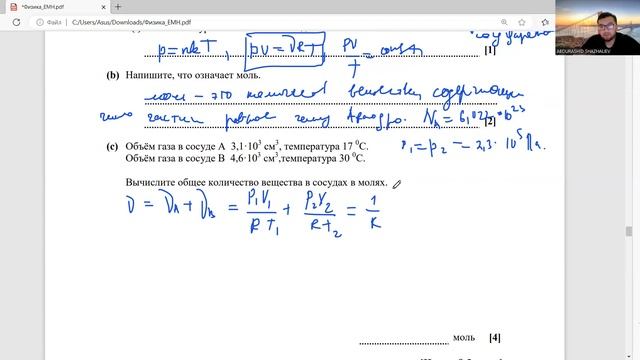 *Физика_EMH.pdf
File C:/Users/Asus/Downloads/Физика_EMH.pdf
ABDURASHID SHAZHALIEV
p = nkT, pV = νRT, PV/T = const
[1]
(b) Напишите, что означает моль.
моль – это количество вещества, содержащ
число частиц равное числу Авогадро. N_A = 6,022 · 10^23
[2]
(c) Объём газа в сосуде A 3,1·10³ см³, температура 17 ⁰C.
P₁ = P₂ = 2,3 · 10⁵ Па.
Объём газа в сосуде B 4,6·10³ см³,температура 30 ⁰C.
Вычислите общее количество вещества в сосудах в молях.
ν = ν_A + ν_B = P₁V₁/RT₁ + P₂V₂/RT₂ = 1/R
моль [4]